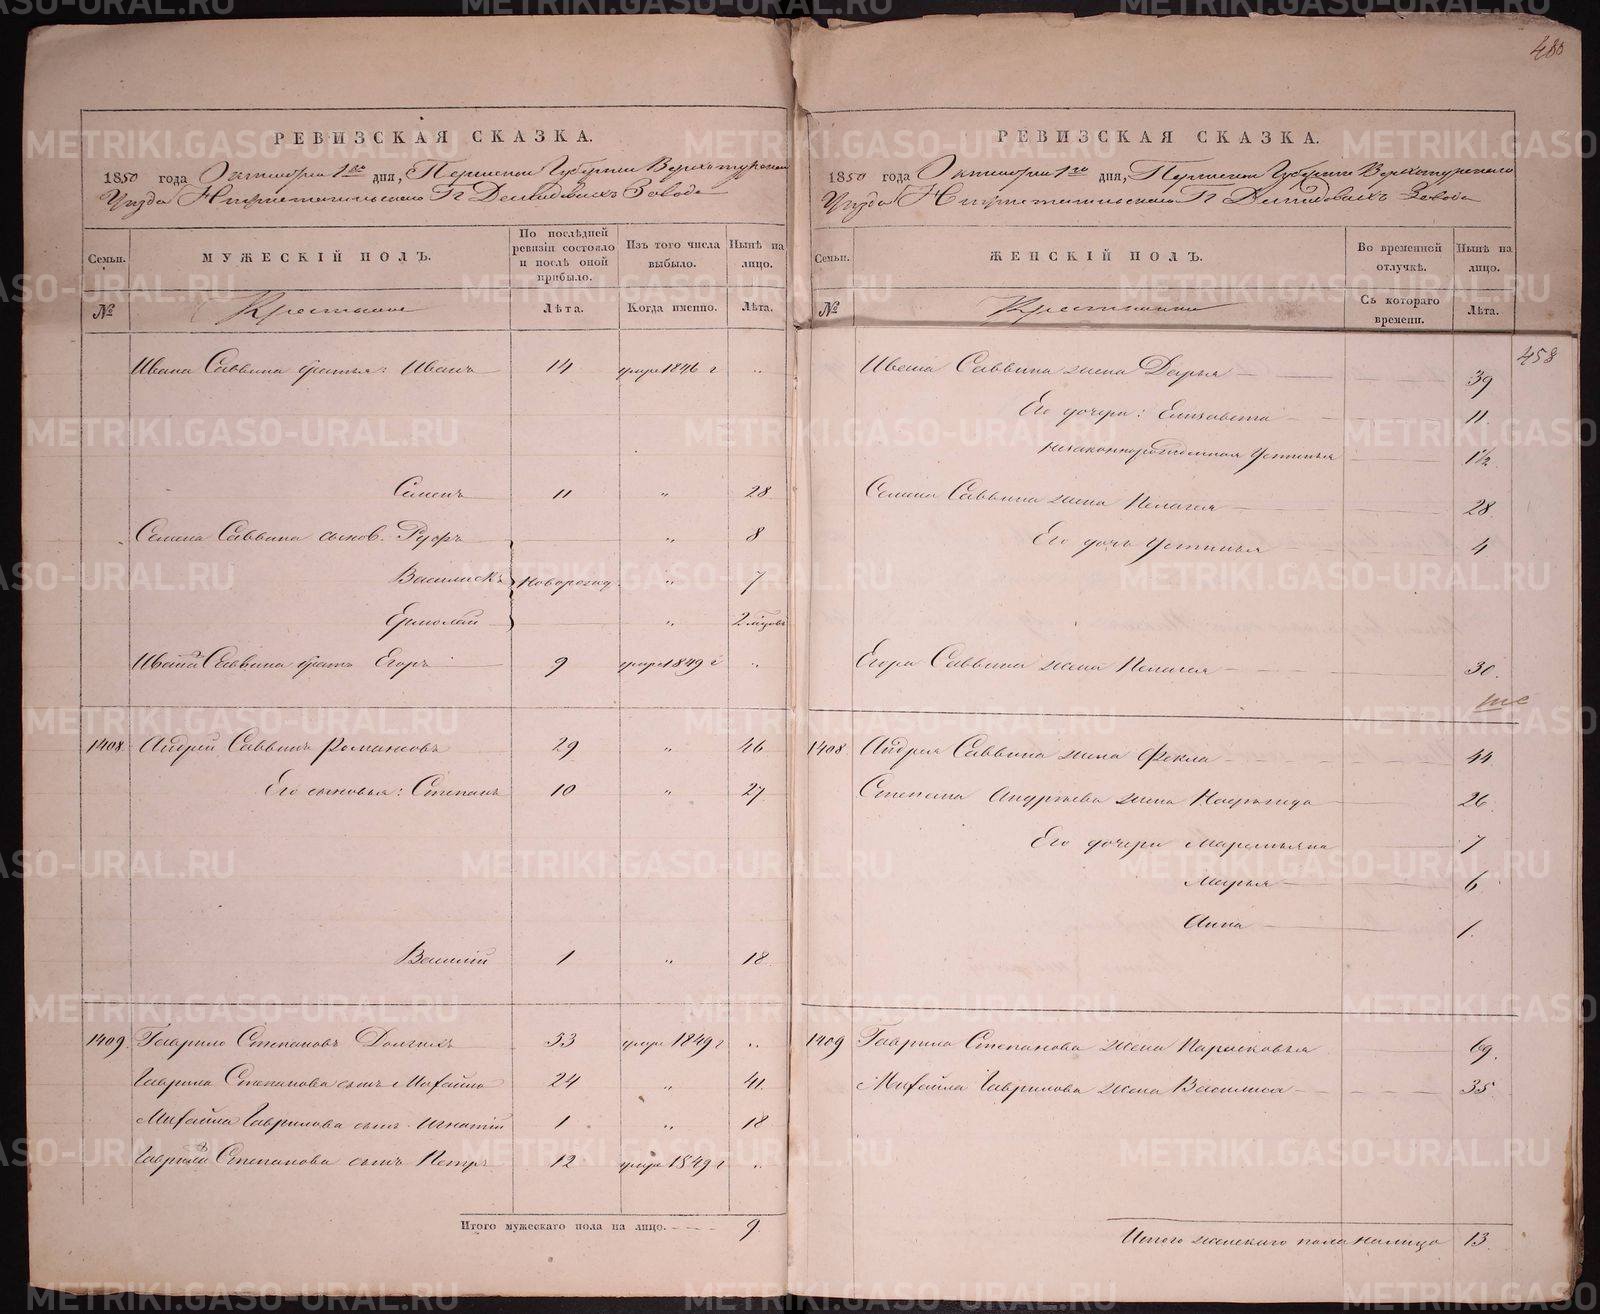 480
РЕВИЗСКАЯ СКАЗКА.
1850 года Октября 1го дня, Пермской Губернии Верхотурскаго
Уезда Нижнетагильскаго Гг Демидовыхъ Завода
Семьи. МУЖЕСКІЙ ПОЛЪ. По послѣдней ревизіи состояло и послѣ оной прибыло. Изъ того числа выбыло. Нынѣ на лицо.
№ Крестьяне Лѣта. Когда именно. Лѣта.
Ивана Саввина братья: Иванъ 14 умре 1846 г „
Семенъ 11 „ 28
Семена Саввина сынов. Руфъ „ 8
Василискъ Новорожд. „ 7
Ермолай „ 2 мѣсяцовъ
Ивана 2 Саввина братъ Егоръ 9 умре 1849 г „
1408. Андрей Саввинъ Романовъ 29 „ 46
Его сыновья: Степанъ 10 „ 27
Василій 1 „ 18
1409. Гаврило Степановъ Долгихъ 53 умре 1849 г „
Гаврила Степанова сынъ Михайло 24 „ 41
Михайла Гаврилова сынъ Игнатій 1 „ 18
Гаврила Степанова сынъ Петръ 12 умре 1849 г „
Итого мужескаго пола на лицо. 9
РЕВИЗСКАЯ СКАЗКА.
1850 года Октября 1го дня, Пермской Губернии Верхотурскаго
Уезда Нижнетагильскаго Гг Демидовыхъ Завода
Семьи. ЖЕНСКІЙ ПОЛЪ. Во временной отлучкѣ. Нынѣ на лицо.
№ Крестьянки Съ котораго времени. Лѣта.
458
Ивана Саввина жена Дарья 39
Его дочери: Елизавета 11
незаконнорожденная Устинья 1½
Семена Саввина жена Пелагея 28
Его дочь Устинья 4
Егора Саввина жена Пелагея 30
1408 Андрея Саввина жена Фекла 44
Степана Андреева жена Надежда 26
Его дочери Маремьяна 7
Марья 6
Анна 1.
1409 Гаврила Степанова жена Парасковья 69.
Михайла Гаврилова жена Василиса 35
Итого женскаго пола налицо 13.
METRIKI.GASO-URAL.RU